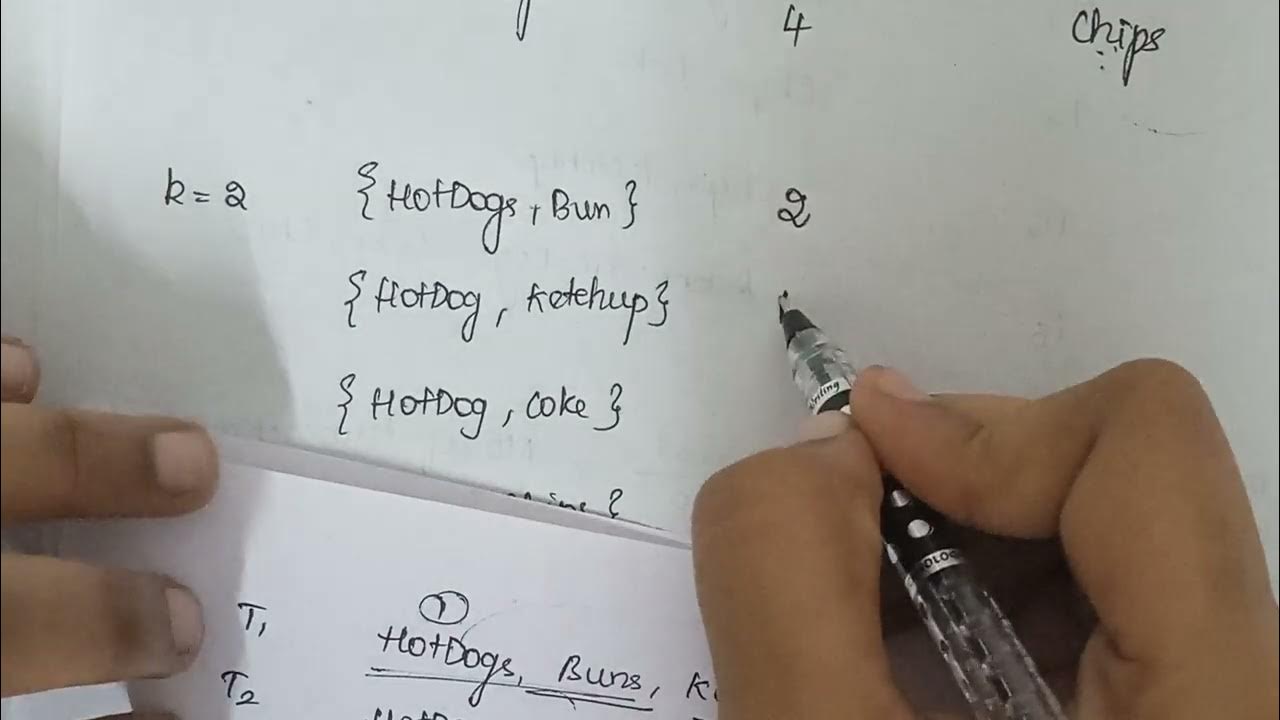 4 Chips
k = 2 {HotDogs, Bun} 2
{HotDog, Ketchup}
{HotDog, Coke}
T1 ①
HotDogs, Buns,
T2